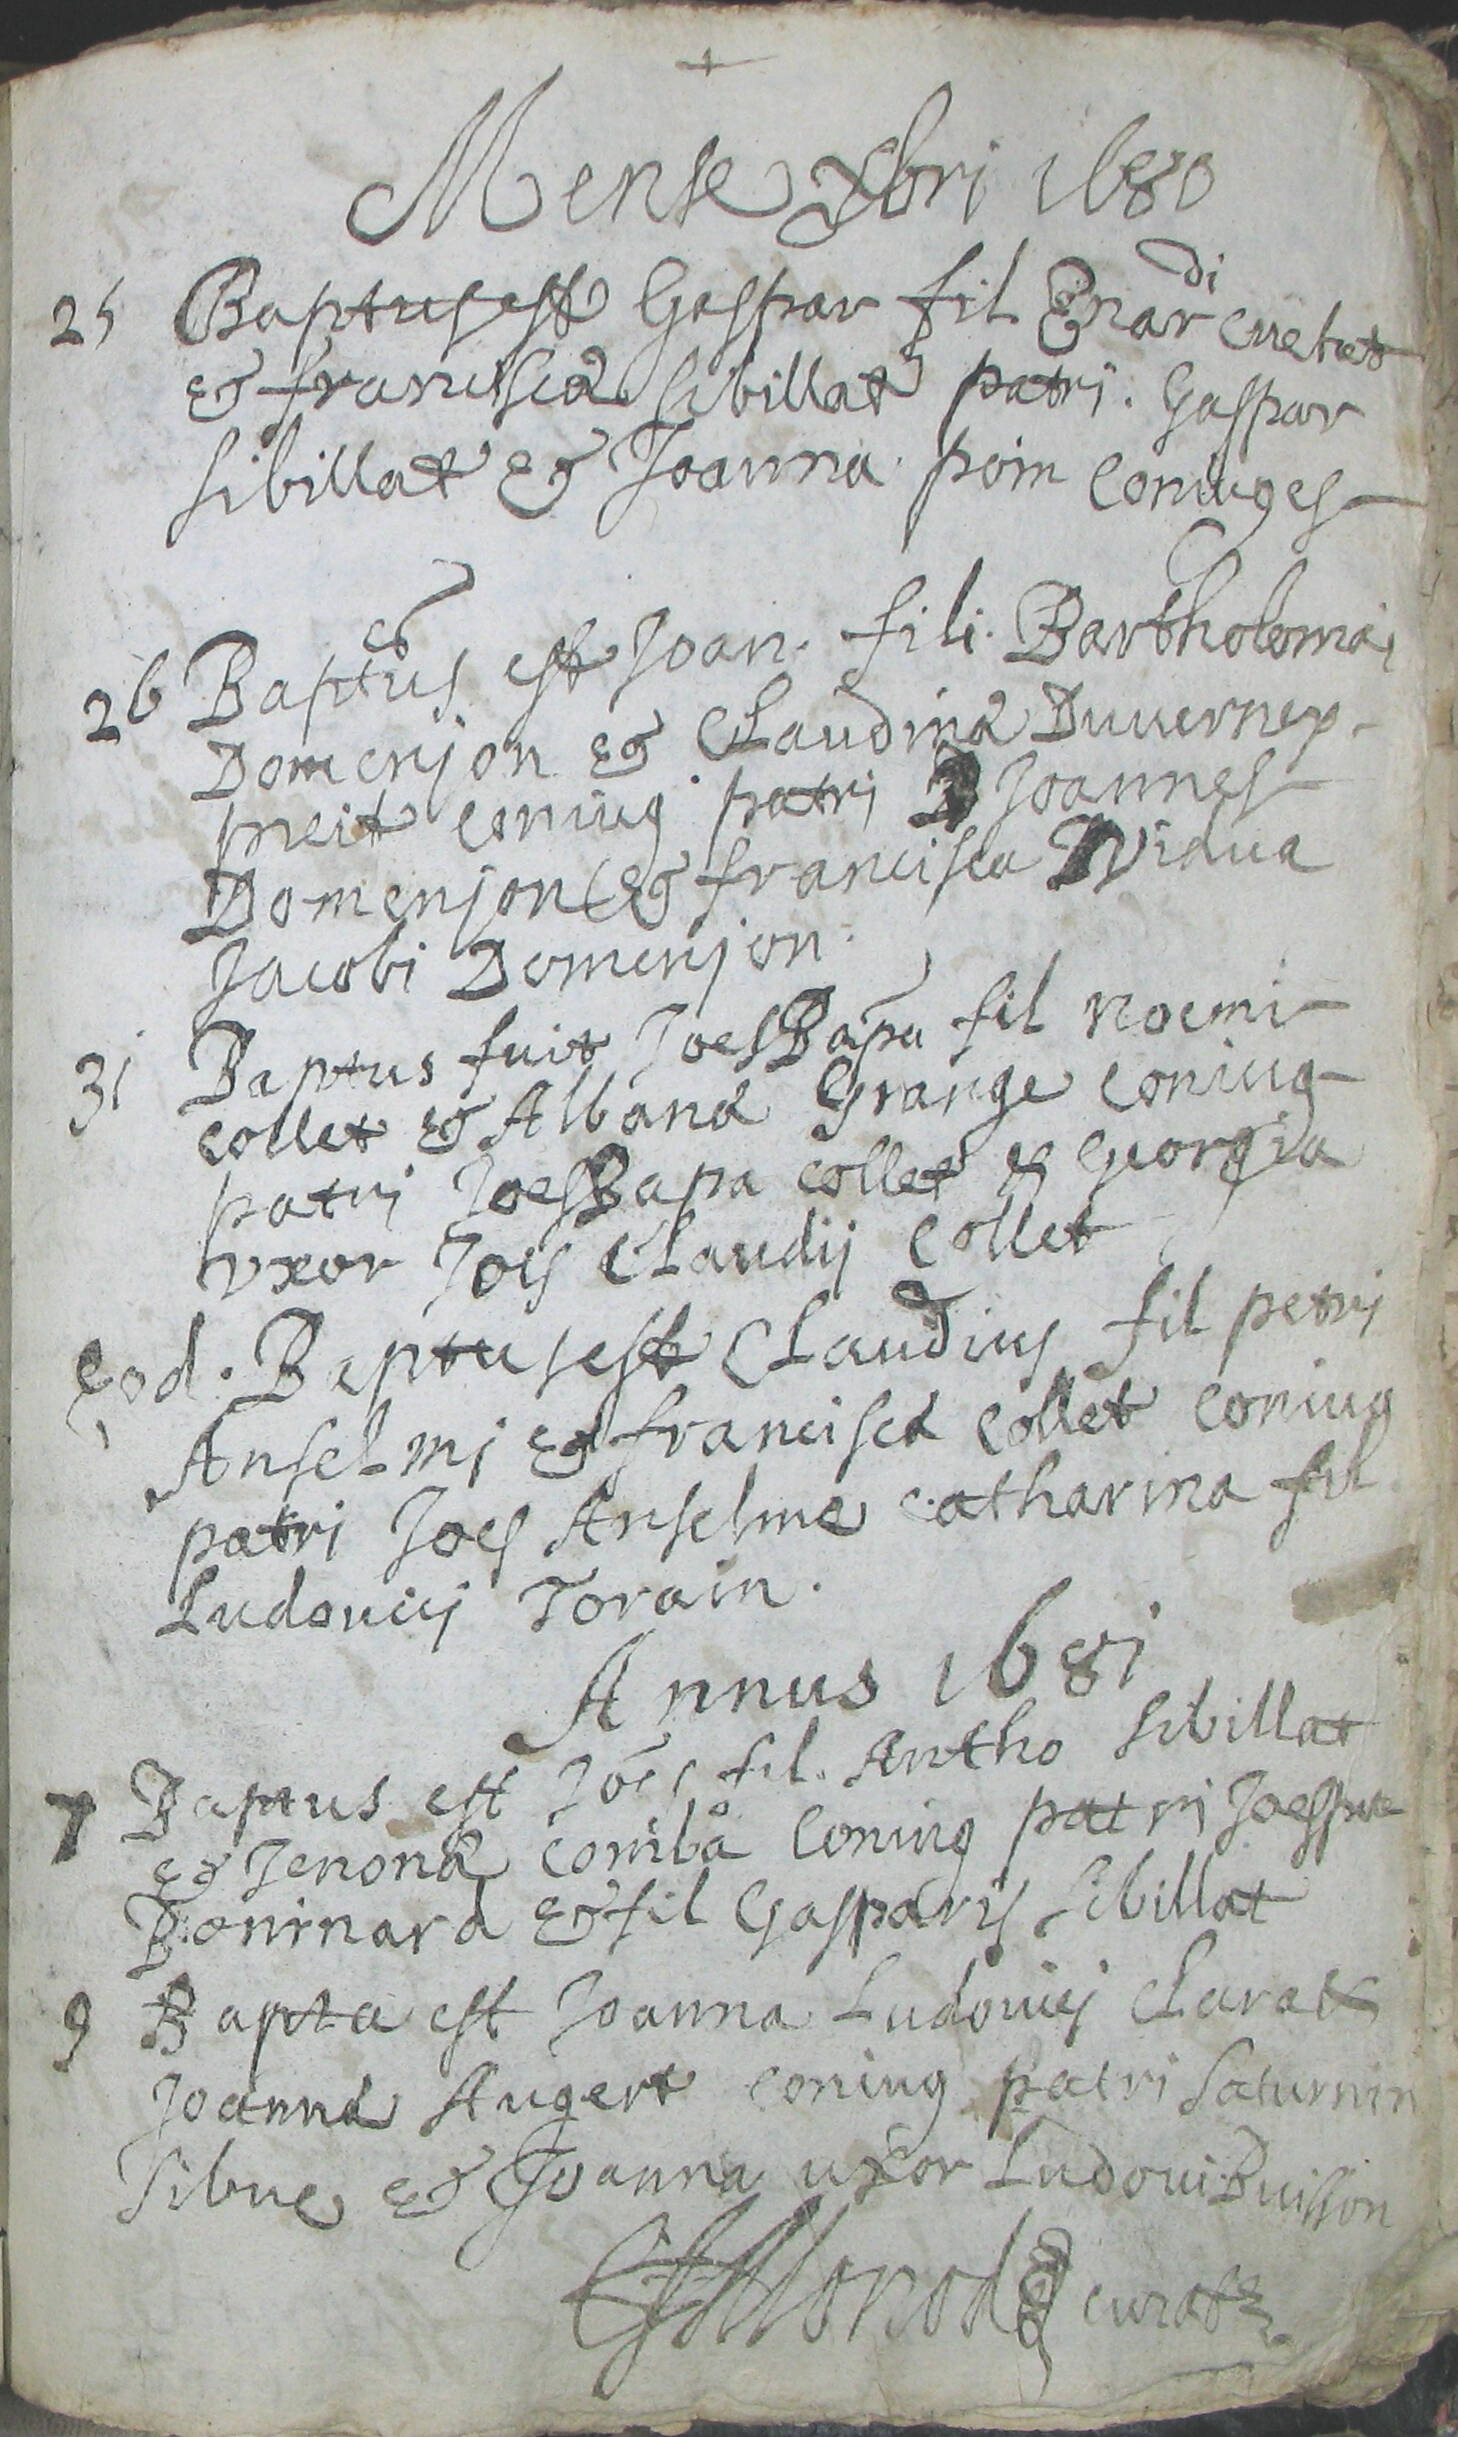 Mense Xbri 1680
25 Baptus est Gaspar fil Enardi
& francisca Sibillat patri. Gaspar
Sibillat & Joanna poin coniuges
26 Baptus est Joan. fili. Bartholomæi
Domenjon & Claudina Duverney
coniug patri Joannes
Domenjon & francisca Vidua
Jacobi Domenjon.
31 Baptus fuit Joes Bapa fil noemi
collet & Albana Grange coniug
patri Joes Bapa collet & Georgia
vxor Jois Claudij Collet
Eod. Baptus est Claudius fil petri
Anselmj & francisca Collet coniug
patri Joes Anselme catharina fil
Ludovicj Torain.
Annus 1681
7 Baptus est Joes fil. Antho Sibillat
& Jenona comba Coniug patri
& fil Gasparis Sibillat
9 Bapta est Joanna Ludovicj Claraz
Joanna Augert coniug patri Saturnin
Sibue & Joanna uxor Ludovi Buisson
Monod curat